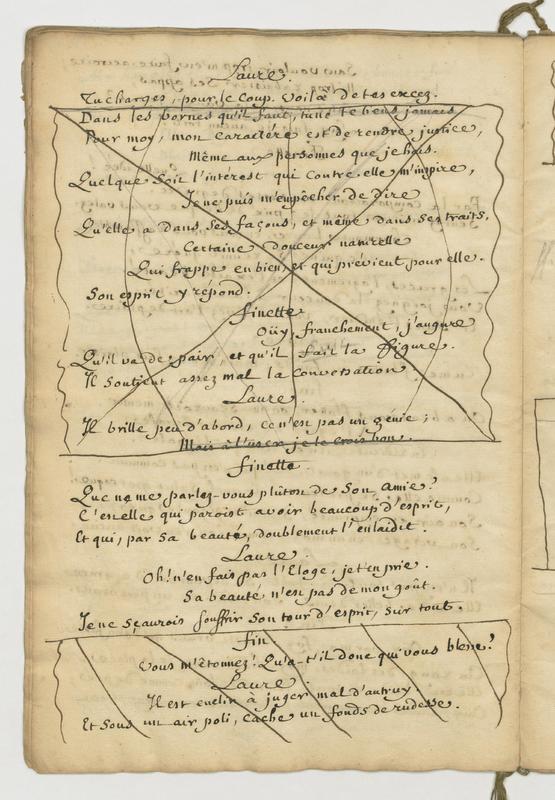 Laure.
Tu charges, pour le coup. Voila de tes excez.
Dans les bornes qu'il faut, tu ne te tiens jamais.
Pour moy, mon caractére est de rendre justice,
Même aux personnes que je hais.
Quelque soit l'interest qui contre elle m'inspire,
Je ne puis m'empêcher de dire
Qu'elle a dans ses façons, et même dans ses traits,
Certaine douceur naturelle
Qui frappe en bien, et qui prévient pour elle.
Son esprit y répond.
finette.
Oüy, franchement, j'augure
Qu'il va de pair, et qu'il fait la figure.
Il soutient assez mal la conversation
Laure.
Il brille peu d'abord, ce n'est pas un genie;
Mais à l'user je le crois bon.
finette.
Que ne me parlez-vous plûtost de son amie?
C'est elle qui paroist avoir beaucoup d'esprit,
Et qui, par sa beauté, doublement l'enlaidit.
Laure.
Oh! n'en fais pas l'Eloge, je t'en prie.
Sa beauté n'est pas de mon goût.
Je ne sçaurois souffrir son tour d'esprit, sur tout.
fin
Vous m'étonnez! Qu'a-t'il donc qui vous blesse?
Laure.
Il est enclin à juger mal d'autruy
Et sous un air poli, cache un fonds de rudesse.